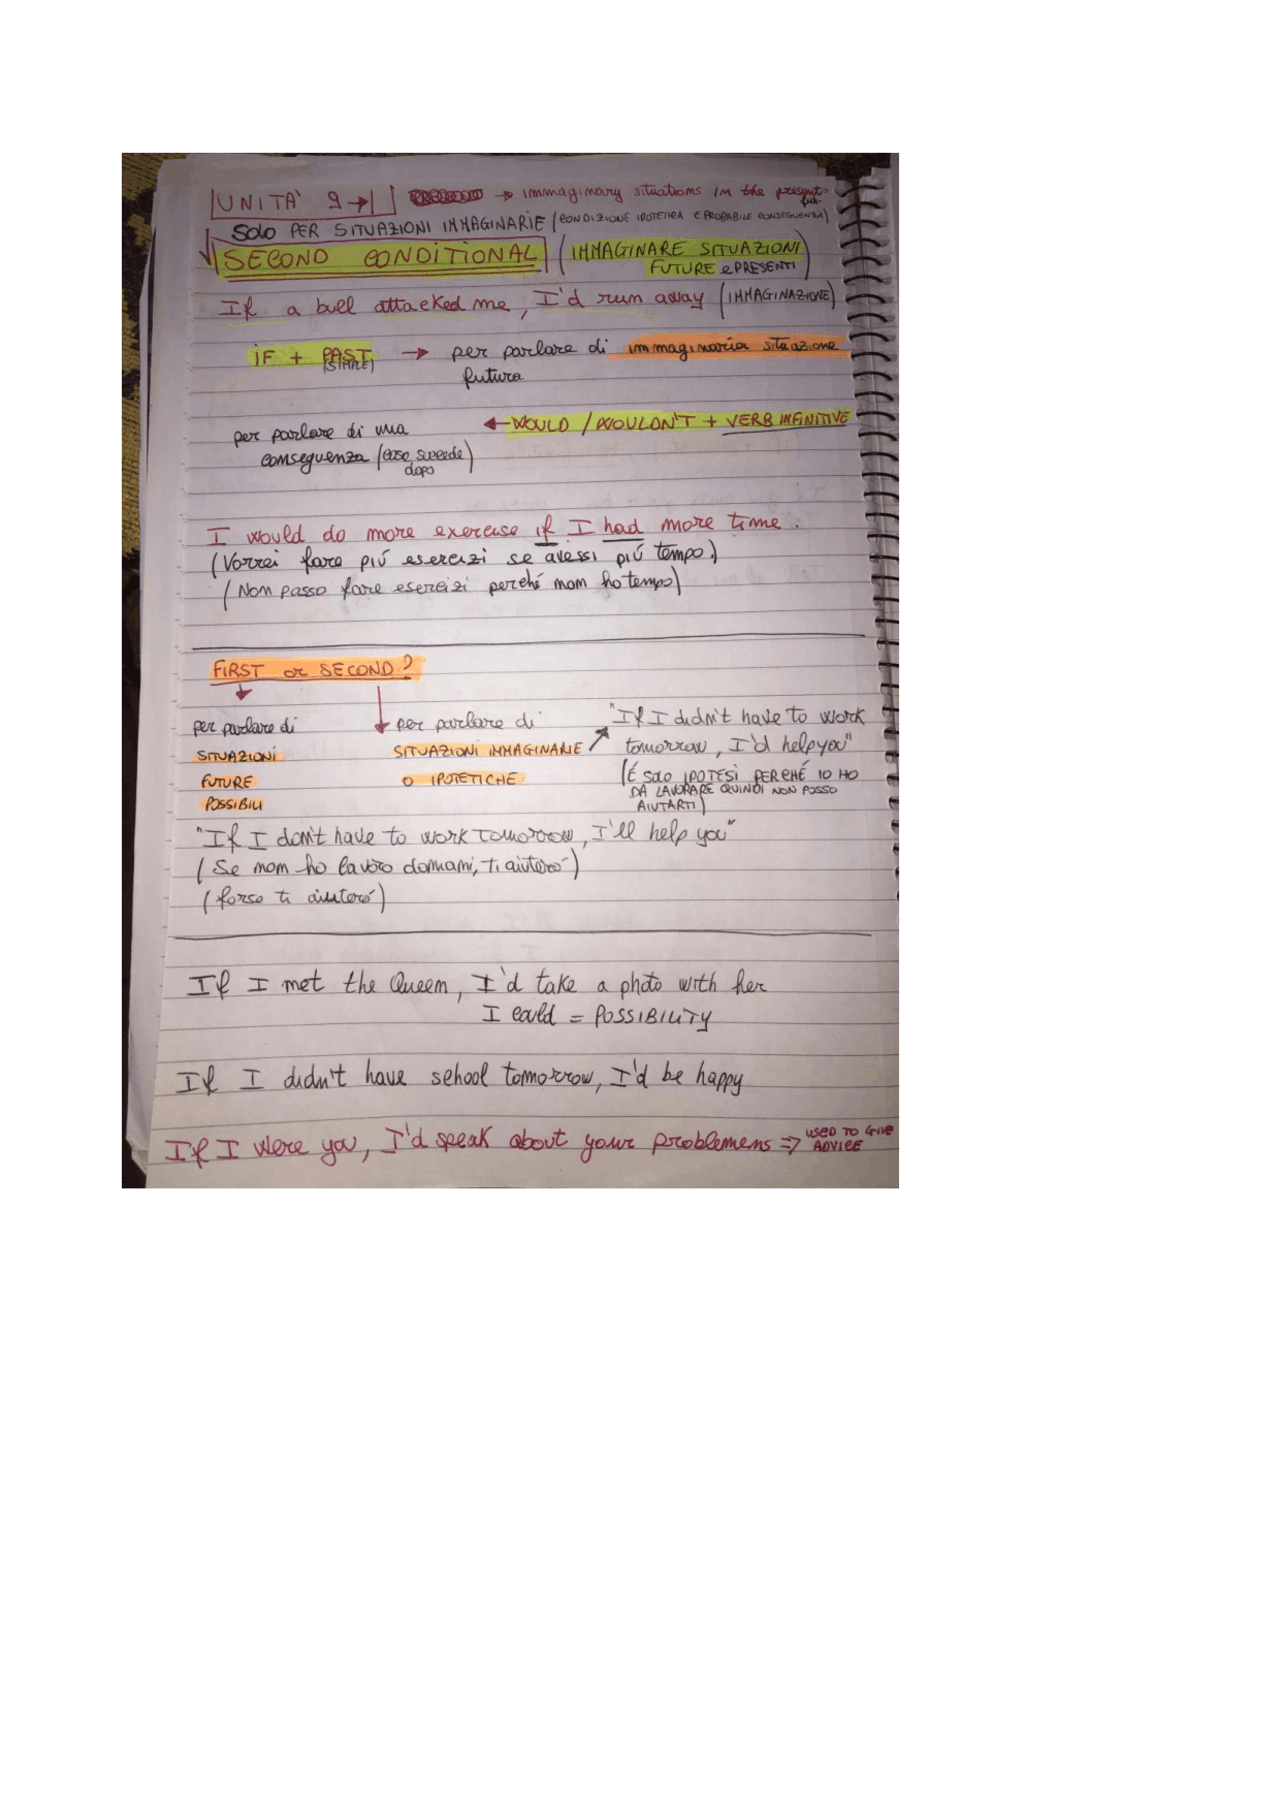 UNITA' 9 → immaginary situations in the present fut.
SOLO PER SITUAZIONI IMMAGINARIE (CONDIZIONE IPOTETICA E PROBABILE CONSEGUENZA)
SECOND CONDITIONAL (IMMAGINARE SITUAZIONI
FUTURE e PRESENTI)
If a bull attacked me, I'd run away (IMMAGINAZIONE)
IF + PAST → per parlare di immaginaria situazione
(SIMPLE)
futura
← WOULD / WOULDN'T + VERB INFINITIVE
per parlare di una
conseguenza (cosa succede
dopo)
I would do more exercise if I had more time.
(Vorrei fare più esercizi se avessi più tempo)
(Non posso fare esercizi perché non ho tempo)
FIRST or SECOND?
per parlare di
SITUAZIONI
FUTURE
POSSIBILI
per parlare di
SITUAZIONI IMMAGINARIE
O IPOTETICHE
"If I didn't have to work
tomorrow, I'd help you"
(É SOLO IPOTESI PERCHÉ IO HO
DA LAVORARE QUINDI NON POSSO
AIUTARTI)
"If I don't have to work tomorrow, I'll help you"
(Se non ho lavoro domani, ti aiuterò)
(forse ti aiuterò)
If I met the Queen, I'd take a photo with her
I could = POSSIBILITY
If I didn't have school tomorrow, I'd be happy
If I were you, I'd speak about your problemens ⇒ USED TO GIVE
ADVICE